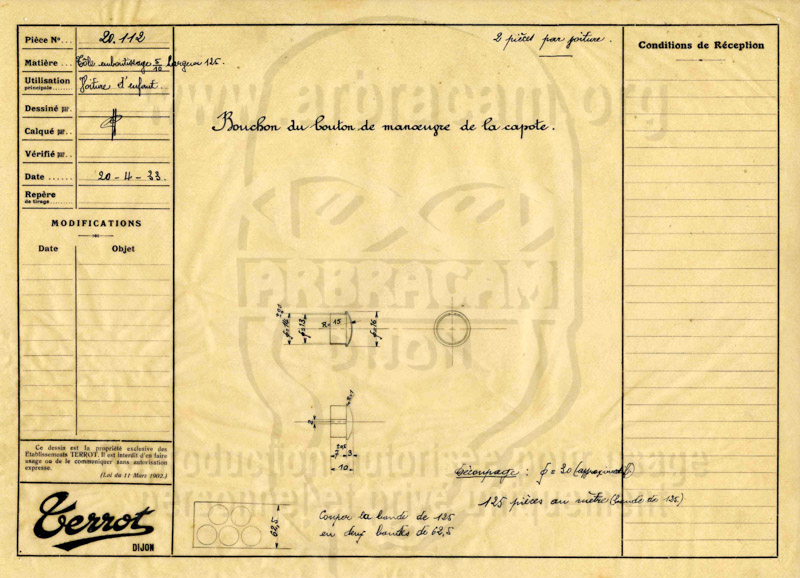 Pièce Nº... 20.112
Matière... Tôle emboutissage 5/10 largeur 125.
Utilisation principale..... Voiture d'enfant.
Dessiné par.
Calqué par..
Vérifié par..
Date ...... 20-4-33.
Repère de tirage.
MODIFICATIONS
Date Objet
Ce dessin est la propriété exclusive des
Etablissements TERROT. Il est interdit d'en faire
usage ou de le communiquer sans autorisation
expresse.
(Loi du 11 Mars 1902.)
Terrot
DIJON
2 pièces par voiture.
Bouchon du bouton de manœuvre de la capote.
www.arbracam.org
ARBRACAM
DIJON
R=15
ϕ=13
ϕ=16
7 3
10
Découpage : ϕ=20 (approximatif)
125 pièces au mètre (bande de 125)
62,5
Couper la bande de 125
en deux bandes de 62,5
Conditions de Réception